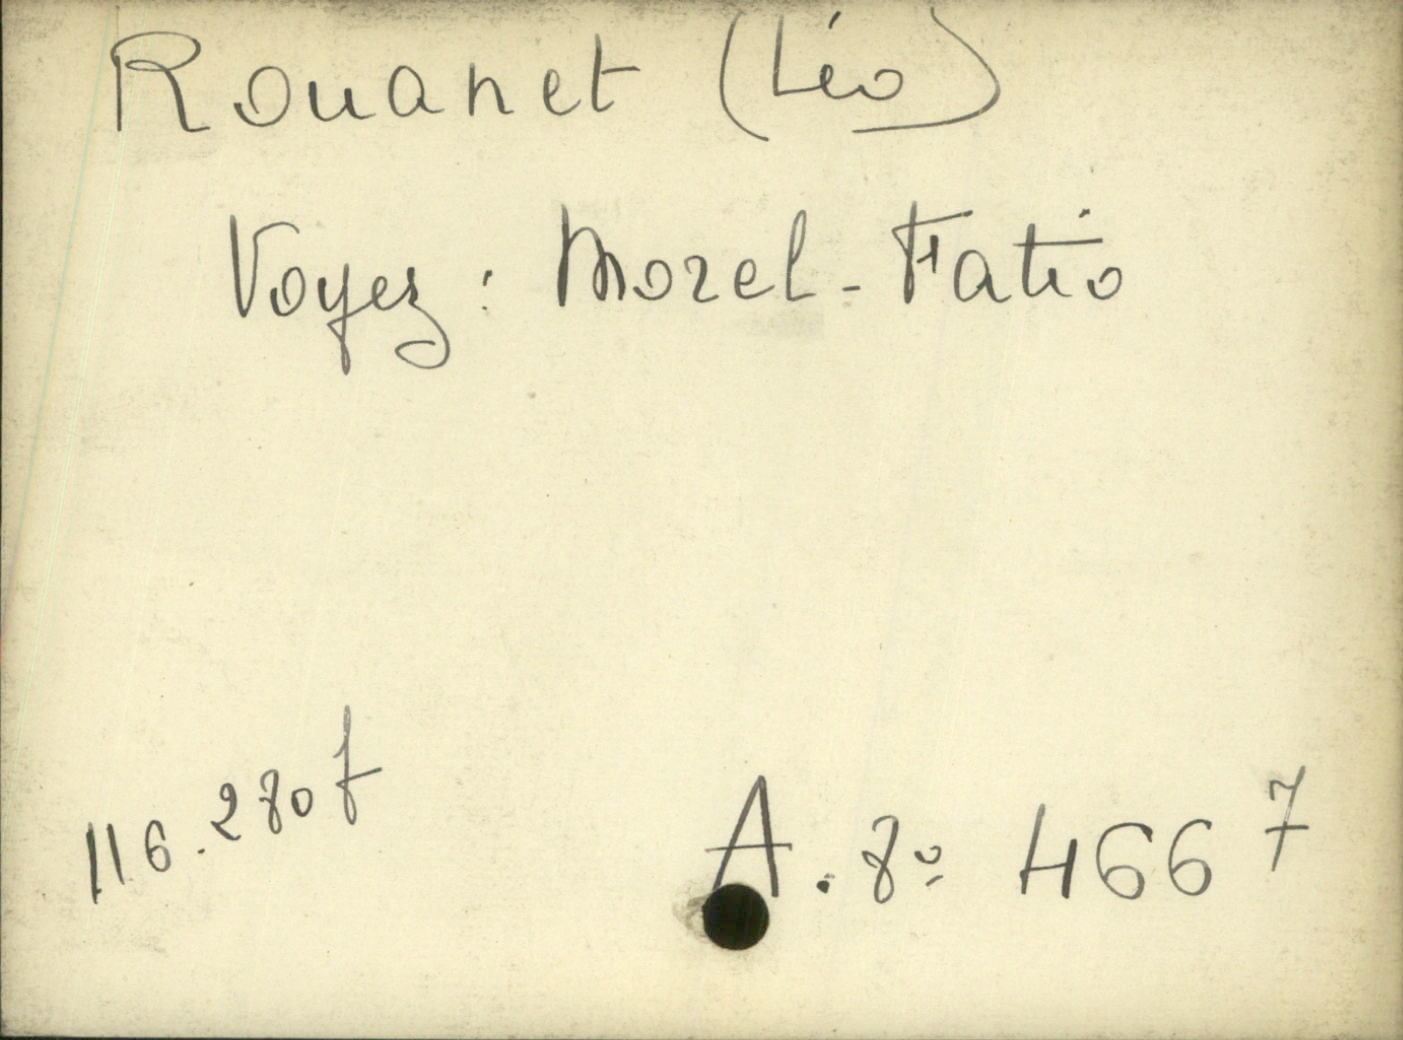 Rouanet (Léo)
Voyez : Morel-Fatio
116.280 f
A. 8º 466 7